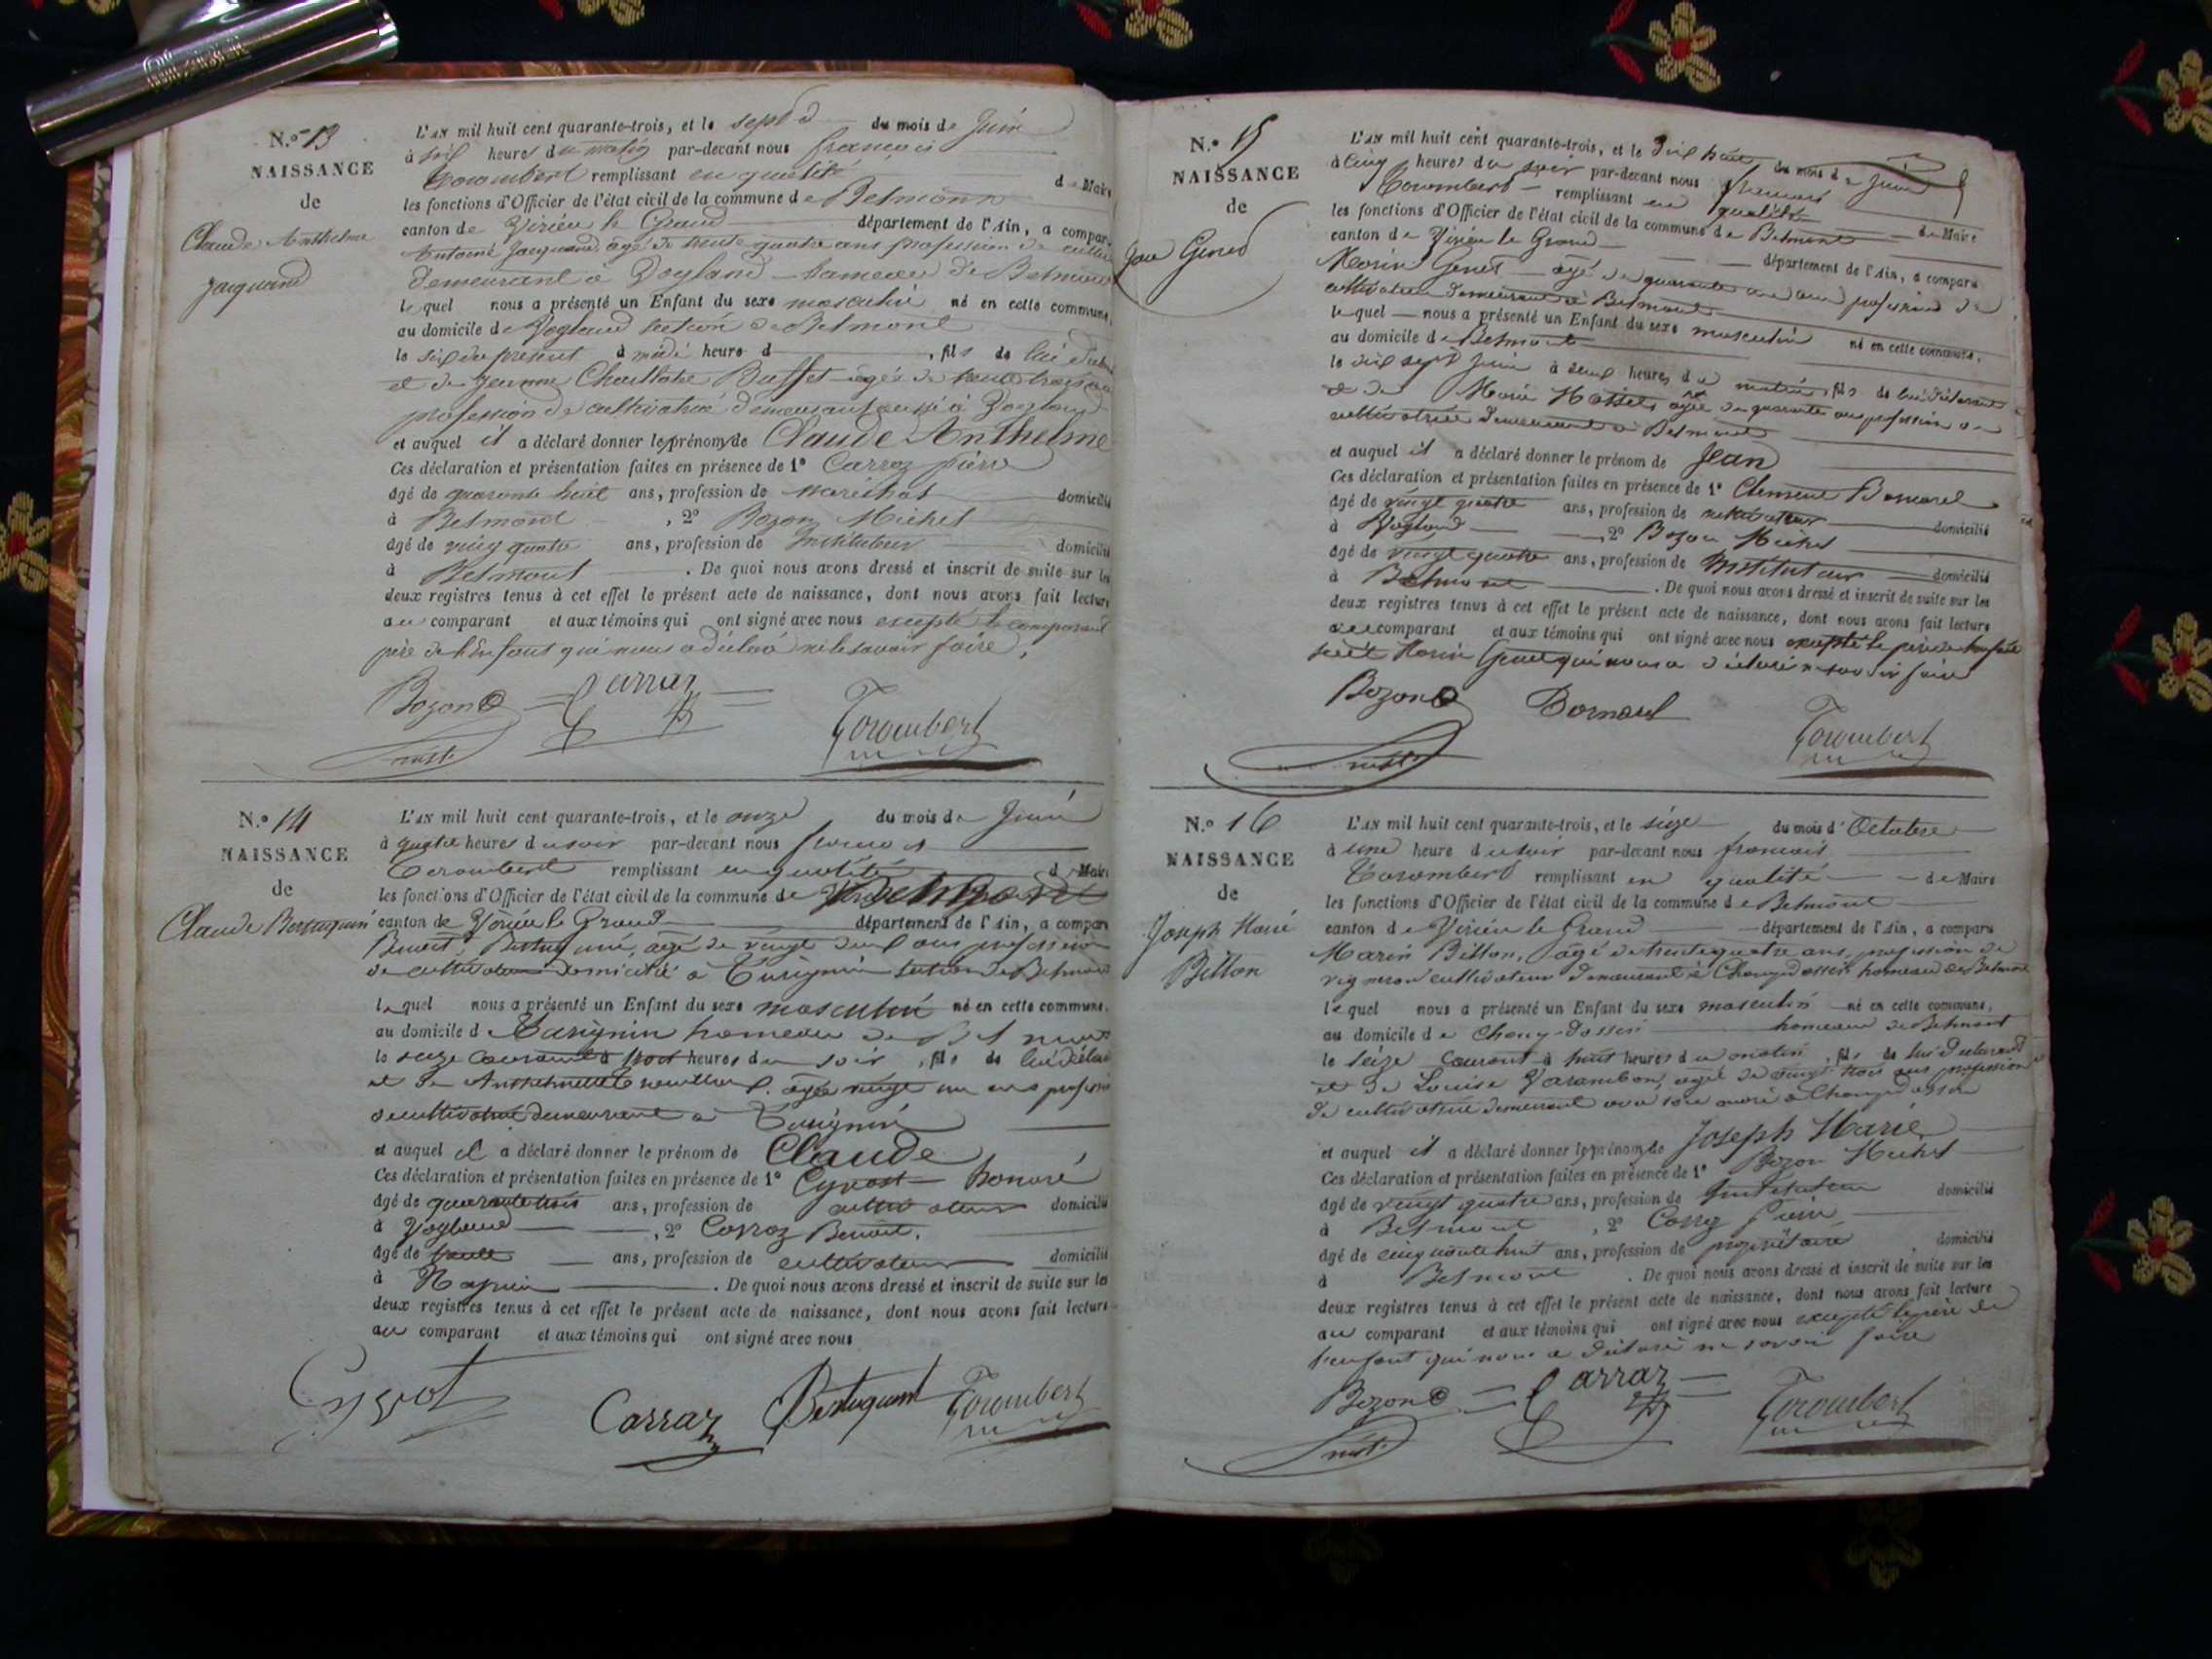 N.º 13
NAISSANCE
de
Claude Anthelme
Jacquand
L'AN mil huit cent quarante-trois, et le sept du mois de Juin
à six heures du matin par-devant nous françois
Torombert remplissant en qualité de Maire
les fonctions d'Officier de l'état civil de la commune de Belmont
canton de Virieu le Grand département de l'Ain, a comparu
Antoine Jacquand, agé de trente quatre ans profession de
demeurant à Vogland hameau de Belmont
lequel nous a présenté un Enfant du sexe masculin né en cette commune,
au domicile de Vogland section de Belmont
le six du présent à midi heure d , fils de lui
et de Jeanne Charlotte Buffet agée de trente trois ans
profession de cultivatrice demeurant aussi à Vogland
et auquel il a déclaré donner les prénoms de Claude Anthelme
Ces déclaration et présentation faites en présence de 1º Carraz pierre
âgé de quarante huit ans, profession de maréchal domicilié
à Belmont , 2º Bozon Michel
âgé de vingt quatre ans, profession de Instituteur domicilié
à Belmont . De quoi nous avons dressé et inscrit de suite sur les
deux registres tenus à cet effet le présent acte de naissance, dont nous avons fait lecture
au comparant et aux témoins qui ont signé avec nous excepté le comparant
père de l'Enfant qui nous a déclaré ne le savoir faire,
Bozon Carraz Torombert
N.º 14
NAISSANCE
de
Claude Bertuquin
L'AN mil huit cent quarante-trois, et le onze du mois de Juin
à quatre heures du soir par-devant nous françois
Torombert remplissant en qualité de Maire
les fonctions d'Officier de l'état civil de la commune de Belmont
canton de Virieu le Grand département de l'Ain, a comparu
Benoit agé de vingt ans profession
de cultivateur domicilié à section de Belmont
lequel nous a présenté un Enfant du sexe masculin né en cette commune,
au domicile d hameau de Belmont
le courant à trois heures du soir, fils de lui
et de agée vingt un ans
de cultivatrice demeurant à
et auquel il a déclaré donner le prénom de Claude
Ces déclaration et présentation faites en présence de 1º Cyvost Honoré
âgé de quarante trois ans, profession de cultivateur domicilié
à Vogland , 2º Carraz Benoit,
âgé de trente ans, profession de cultivateur domicilié
à . De quoi nous avons dressé et inscrit de suite sur les
deux registres tenus à cet effet le présent acte de naissance, dont nous avons fait lecture
au comparant et aux témoins qui ont signé avec nous
Carraz Torombert
N.º 15
NAISSANCE
de
Jean Genet
L'AN mil huit cent quarante-trois, et le dix huit du mois de Juin
à cinq heures du soir par-devant nous françois
Torombert remplissant en qualité de Maire
les fonctions d'Officier de l'état civil de la commune de Belmont
canton de Virieu le Grand département de l'Ain, a comparu
Marin Genet âgé de quarante ans profession de
cultivateur demeurant à Belmont
lequel nous a présenté un Enfant du sexe masculin né en cette commune,
au domicile de Belmont
le dix sept Juin à heures du matin, fils de lui déclarant
et de Marie agée de quarante ans profession de
cultivatrice demeurant à Belmont
et auquel il a déclaré donner le prénom de Jean
Ces déclaration et présentation faites en présence de 1º Clement Bornarel
âgé de vingt quatre ans, profession de cultivateur domicilié
à Vogland , 2º Bozon Michel
âgé de vingt quatre ans, profession de Instituteur domicilié
à Belmont . De quoi nous avons dressé et inscrit de suite sur les
deux registres tenus à cet effet le présent acte de naissance, dont nous avons fait lecture
au comparant et aux témoins qui ont signé avec nous excepté le père de l'enfant
Marin Genet qui nous a déclaré ne savoir faire
Bozon Bornarel Torombert
N.º 16
NAISSANCE
de
Joseph Marie
Bitton
L'AN mil huit cent quarante-trois, et le seize du mois d'Octobre
à une heure du soir par-devant nous françois
Torombert remplissant en qualité de Maire
les fonctions d'Officier de l'état civil de la commune de Belmont
canton de Virieu le Grand département de l'Ain, a comparu
Marin Bitton, âgé de trente quatre ans, profession de
vigneron cultivateur demeurant à hameau de Belmont
lequel nous a présenté un Enfant du sexe masculin né en cette commune,
au domicile de hameau de Belmont
le seize courant à huit heures du matin, fils de lui déclarant
et de Louise Varambon, agée de vingt trois ans profession
de cultivatrice demeurant avec son mari à
et auquel il a déclaré donner les prénoms de Joseph Marie
Ces déclaration et présentation faites en présence de 1º Bozon Michel
âgé de vingt quatre ans, profession de Instituteur domicilié
à Belmont , 2º pierre
âgé de cinquante huit ans, profession de propriétaire, domicilié
à Belmont . De quoi nous avons dressé et inscrit de suite sur les
deux registres tenus à cet effet le présent acte de naissance, dont nous avons fait lecture
au comparant et aux témoins qui ont signé avec nous excepté le père de
l'enfant qui nous a déclaré ne savoir faire
Bozon Carraz Torombert